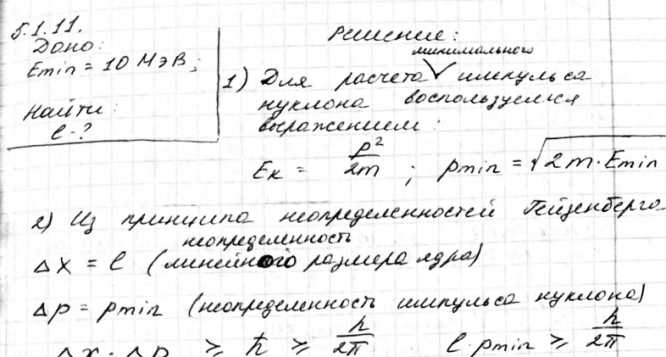 5.1.11.
Дано:
Emin = 10 МэВ;
Найти:
l-?
Решение:
минимального
1) Для расчета импульса
нуклона воспользуемся
выражением:
Eк = p²/2m ; pmin = √2m·Emin
2) Из принципа неопределенностей Гейзенберга
неопределенность
Δx = l (линейного размера ядра)
Δp = pmin (неопределенность импульса нуклона)
Δx · Δp ≥ ħ ≥ h/2π   l·pmin ≥ h/2π